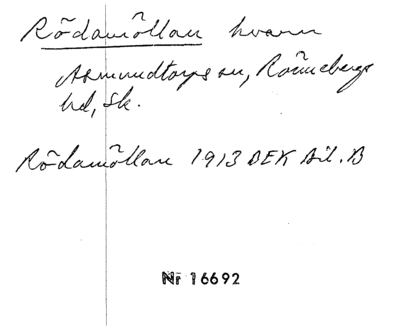 Rödamöllan kvarn
Asmundtorps sn, Rönnebergs
hd, Sk.
Rödamöllan 1913 BEK Bil. B
Nr 16692